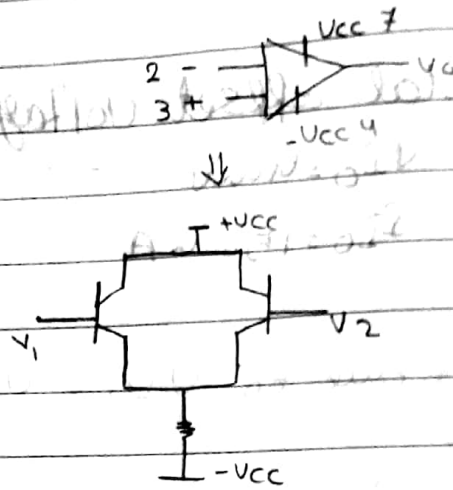 VCC 7
2 -
3 +
-VCC 4
+VCC
V1
V2
-VCC